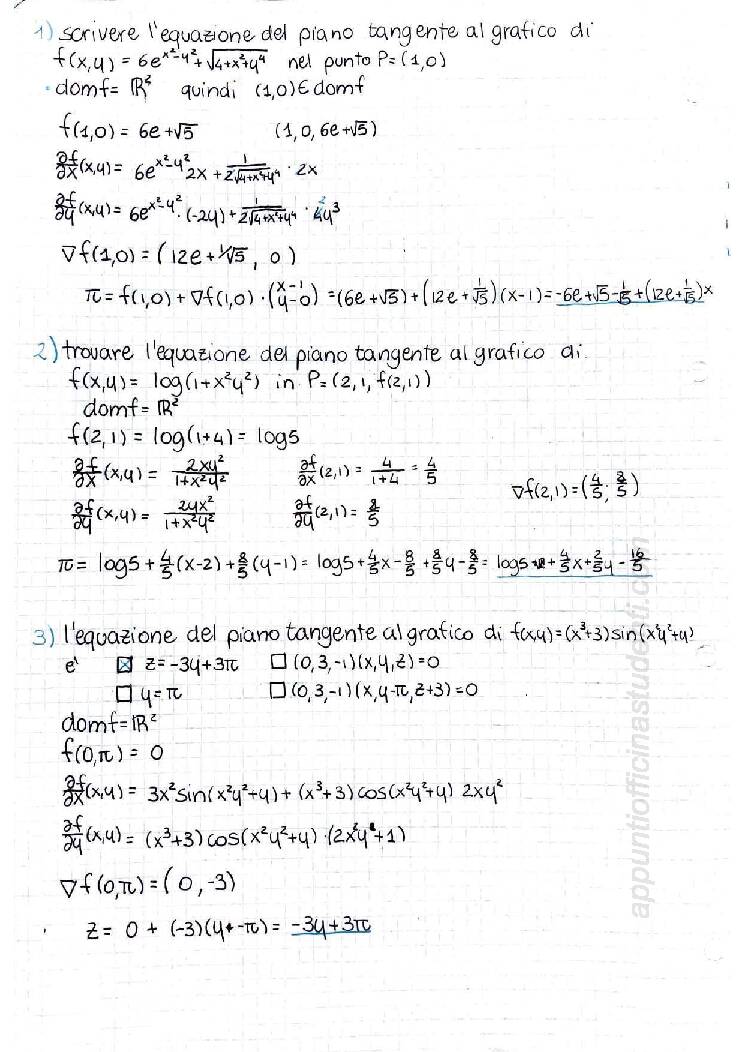 1) scrivere l'equazione del piano tangente al grafico di
f(x,y) = 6e^(x²-y²) + √(4+x²+y⁴) nel punto P=(1,0)
· domf = ℝ² quindi (1,0) ∈ domf
f(1,0) = 6e+√5 (1,0,6e+√5)
∂f/∂x (x,y) = 6e^(x²-y²) 2x + 1/(2√(4+x²+y⁴)) · 2x
∂f/∂y (x,y) = 6e^(x²-y²) · (-2y) + 1/(2√(4+x²+y⁴)) · 4y³
∇f(1,0) = (12e+1/√5, 0)
π = f(1,0) + ∇f(1,0) · (x-1 y-0) = (6e+√5) + (12e+1/√5)(x-1) = -6e+√5-1/√5+(12e+1/√5)x
2) trovare l'equazione del piano tangente al grafico di
f(x,y) = log(1+x²y²) in P=(2,1,f(2,1))
domf = ℝ²
f(2,1) = log(1+4) = log5
∂f/∂x (x,y) = 2xy²/(1+x²y²) ∂f/∂x (2,1) = 4/(1+4) = 4/5
∂f/∂y (x,y) = 2yx²/(1+x²y²) ∂f/∂y (2,1) = 8/5 ∇f(2,1) = (4/5; 8/5)
π = log5 + 4/5 (x-2) + 8/5 (y-1) = log5 + 4/5 x - 8/5 + 8/5 y - 8/5 = log5 + 4/5 x + 2/5 y - 16/5
3) l'equazione del piano tangente al grafico di f(x,y)=(x³+3)sin(x²y²+y)
e' ☒ z=-3y+3π ☐ (0,3,-1)(x,y,z)=0
☐ y=π ☐ (0,3,-1)(x,y-π,z+3)=0
domf=ℝ²
f(0,π) = 0
∂f/∂x (x,y) = 3x²sin(x²y²+y) + (x³+3)cos(x²y²+y) 2xy²
∂f/∂y (x,y) = (x³+3)cos(x²y²+y) · (2x²y+1)
∇f(0,π) = (0,-3)
z = 0 + (-3)(y-π) = -3y+3π
appuntiofficinastudenti.com